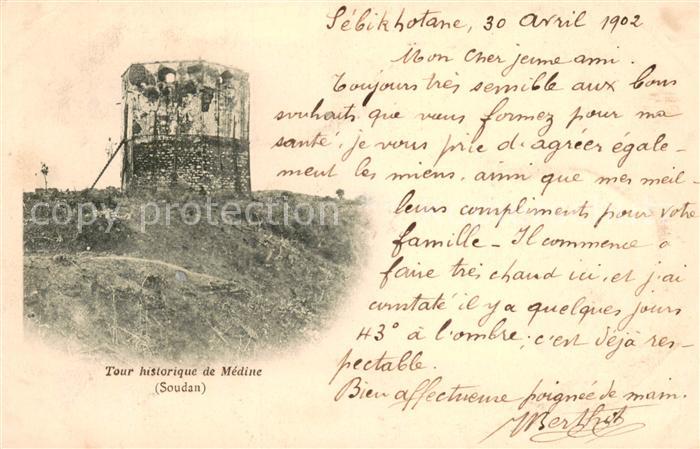 Sébikhotane, 30 avril 1902
Mon cher jeune ami.
Toujours très sensible aux bons
souhaits que vous formez pour ma
santé, je vous prie d'agréer égale-
ment les miens, ainsi que mes meil-
leurs compliments pour votre
famille - Il commence à
faire très chaud ici, et j'ai
constaté il y a quelques jours
43° à l'ombre; c'est déjà res-
pectable.
Bien affectueuse poignée de main.
Berthot
Tour historique de Médine
(Soudan)
copy protection
copy protection